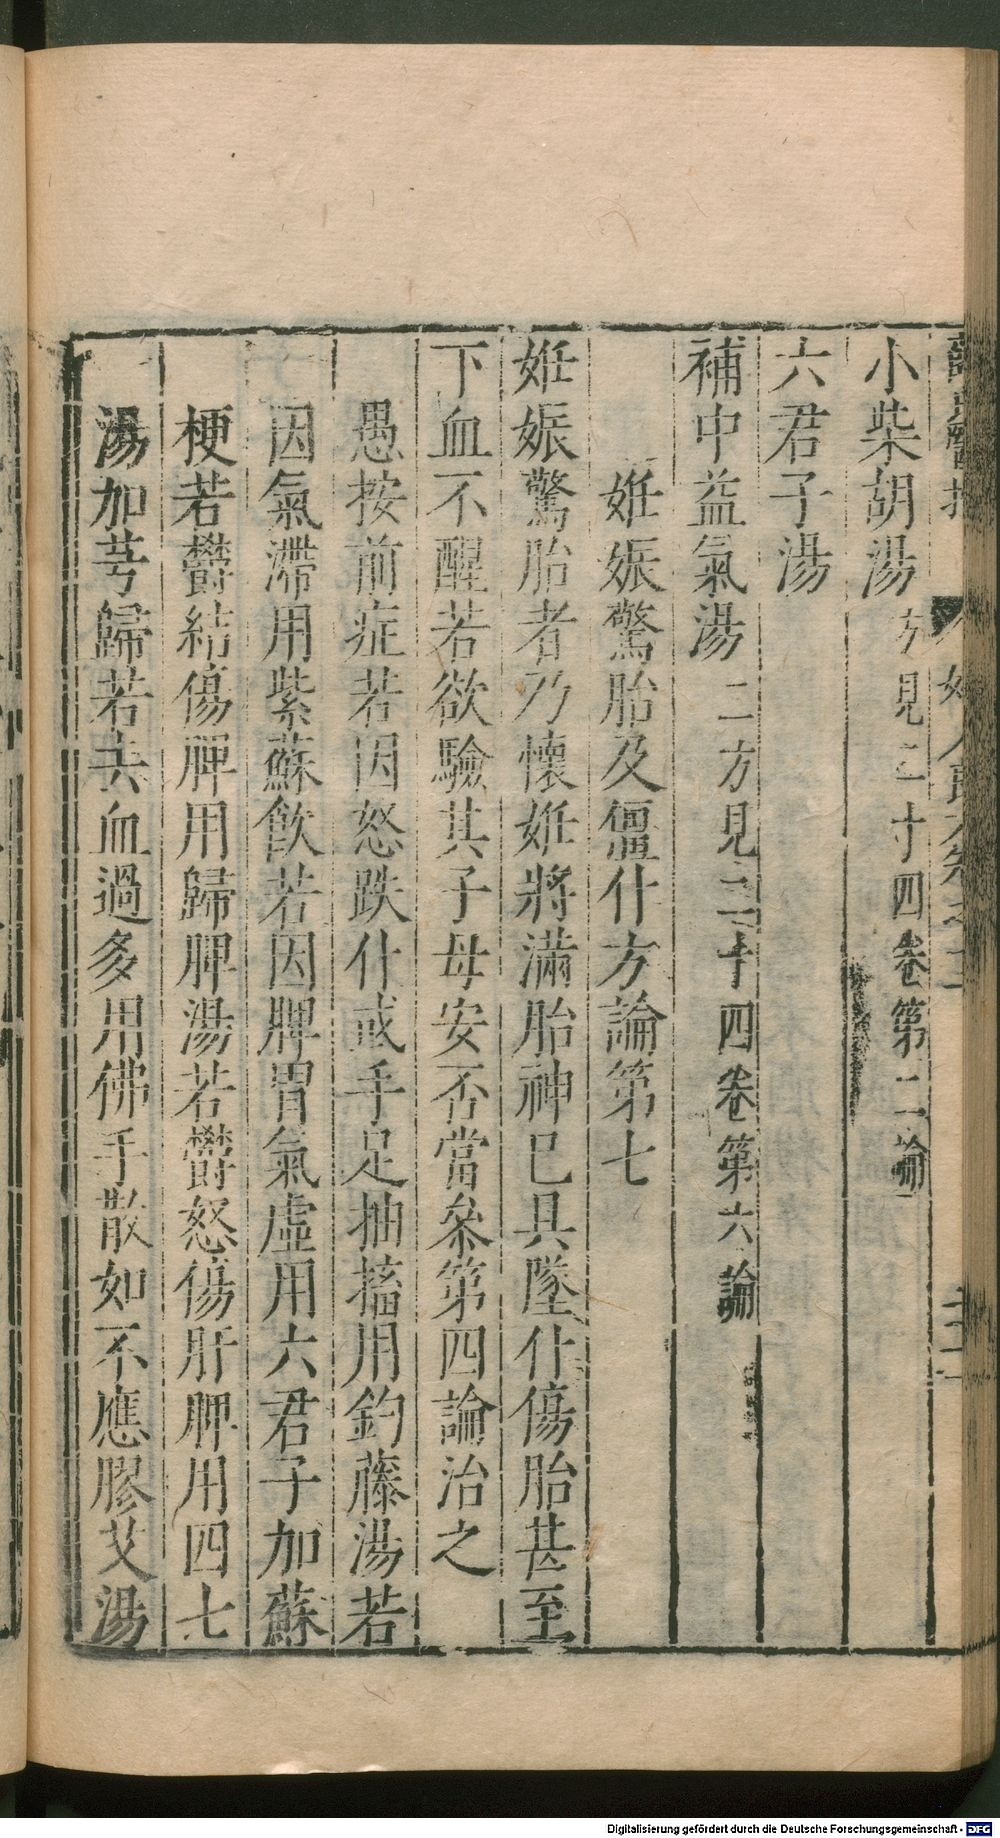 小柴胡湯 方見二十四卷第二論
六君子湯
補中益氣湯 二方見二十四卷第六論
妊娠驚胎及僵仆方論第七
妊娠驚胎者乃懷妊將滿胎神巳具墜仆傷胎甚至
下血不醒若欲驗其子母安否當叅第四論治之
愚按前症若因怒跌仆或手足抽搐用鈞藤湯若
因氣滯用紫蘇飲若因脾胃氣虛用六君子加蘇
梗若鬱結傷脾用歸脾湯若鬱怒傷肝脾用四七
湯加芎歸若去血過多用佛手散如不應膠艾湯
Digitalisierung gefördert durch die Deutsche Forschungsgemeinschaft - DFG